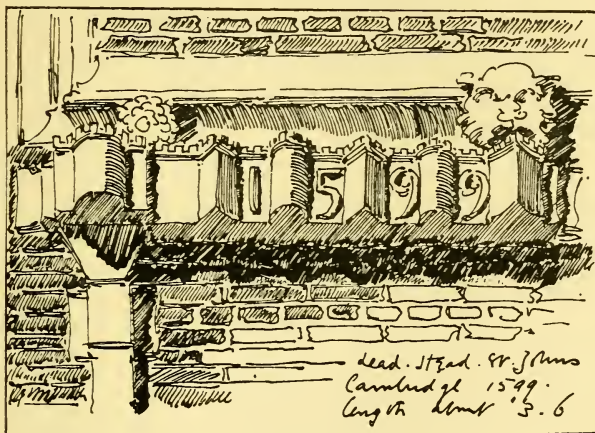 1599
Lead. Head. St. Johns
Cambridge 1599.
length about 3.6